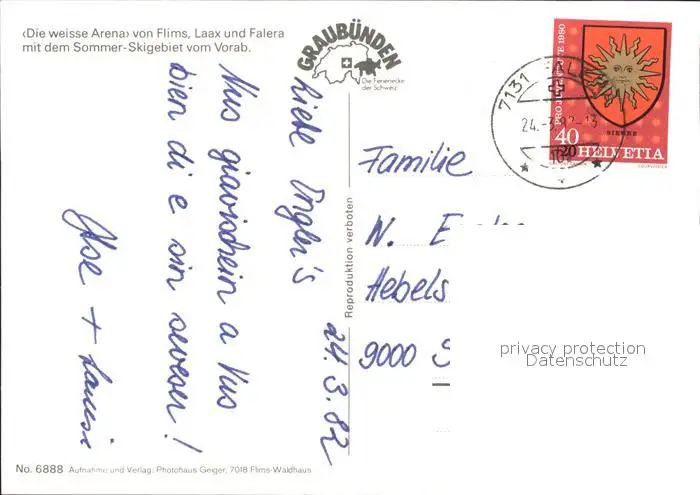 ‹Die weisse Arena› von Flims, Laax und Falera
mit dem Sommer-Skigebiet vom Vorab.
GRAUBÜNDEN
Die Ferienecke
der Schweiz
24.3.82
Liebe
Nus giavischein a Vus
bien di e sin seveser!
Ilse +
Reproduktion verboten
PRO JUVENTUTE 1980
SIERRE
40
+20
HELVETIA
COURVOISIER
7131
24.-3.82-13
Familie
N. E
Hebels
9000 S
privacy protection
Datenschutz
No. 6888 Aufnahme und Verlag: Photohaus Geiger, 7018 Flims-Waldhaus